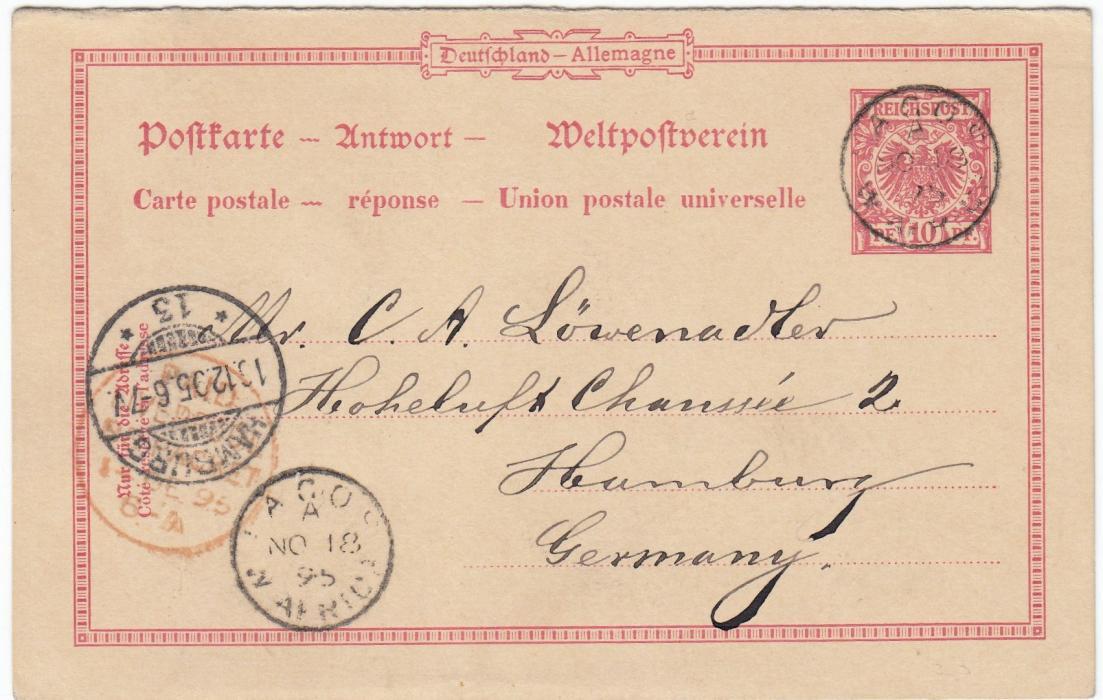 Deutschland – Allemagne
REICHSPOST
10 PF.
Postkarte — Antwort — Weltpostverein
Carte postale — réponse — Union postale universelle
LAGOS
A
W. AFRICA
Mr. C. A. Löwenadler
Hoheluft Chaussée 2.
Hamburg
Germany.
Nur für die Adresse
Côté réservé à l'adresse
HAMBURG
* 13 *
12.95.6-7
PAID
95
LAGOS
A
NO 18
95
W. AFRICA